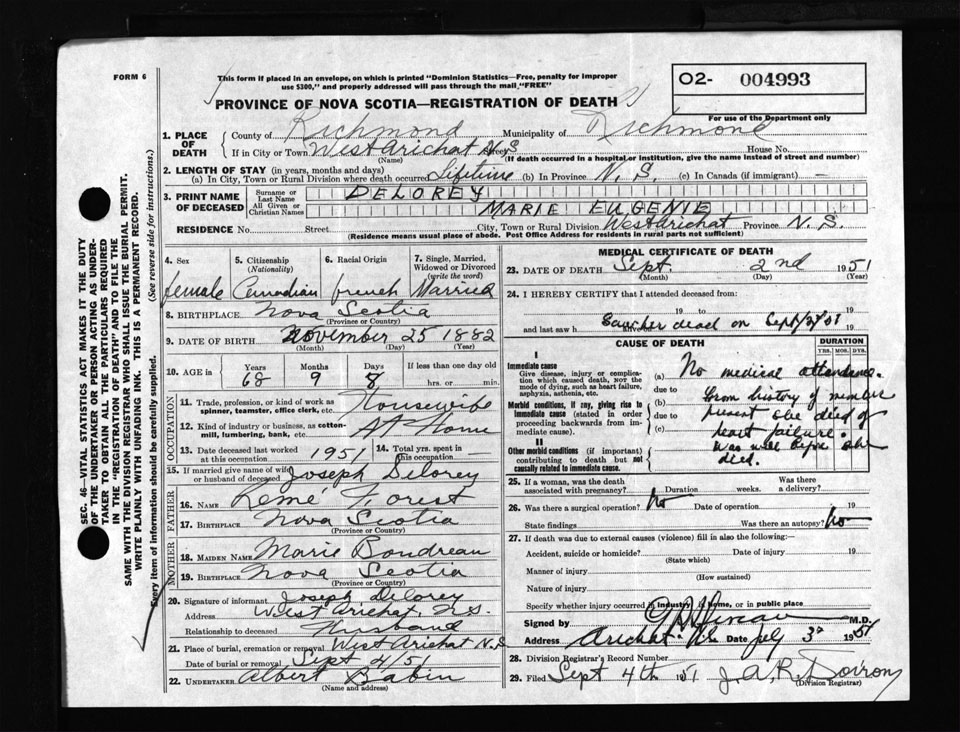 FORM 6
This form if placed in an envelope, on which is printed "Dominion Statistics—Free, penalty for improper
use $300," and properly addressed will pass through the mail, "FREE"
O2- 004993
PROVINCE OF NOVA SCOTIA—REGISTRATION OF DEATH
For use of the Department only
1. PLACE OF DEATH
County of Richmond Municipality of Richmond
If in City or Town West Arichat N.S Street House No.
(Name) (If death occurred in a hospital or institution, give the name instead of street and number)
2. LENGTH OF STAY (in years, months and days)
(a) In City, Town or Rural Division where death occurred Lifetime (b) In Province N.S. (c) In Canada (if immigrant) —
3. PRINT NAME OF DECEASED
Surname or Last Name DELOREY
All Given or Christian Names MARIE EUGENIE
RESIDENCE No. Street City, Town or Rural Division West Arichat Province N.S.
(Residence means usual place of abode. Post Office Address for residents in rural parts not sufficient)
4. Sex 5. Citizenship (Nationality) 6. Racial Origin 7. Single, Married, Widowed or Divorced (write the word)
female Canadian french Married
8. BIRTHPLACE Nova Scotia
(Province or Country)
9. DATE OF BIRTH November 25 1882
(Month) (Day) (Year)
10. AGE in Years Months Days If less than one day
68 9 8 hrs. or min.
OCCUPATION
11. Trade, profession, or kind of work as spinner, teamster, office clerk, etc. Housewife
12. Kind of industry or business, as cotton-mill, lumbering, bank, etc. At Home
13. Date deceased last worked at this occupation 1951 14. Total yrs. spent in this occupation
15. If married give name of wife or husband of deceased Joseph Delorey
FATHER
16. NAME Remé Forest
17. BIRTHPLACE Nova Scotia
(Province or Country)
MOTHER
18. MAIDEN NAME Marie Boudreau
19. BIRTHPLACE Nova Scotia
(Province or Country)
20. Signature of informant Joseph Delorey
Address West Arichat, N.S.
Relationship to deceased Husband
21. Place of burial, cremation or removal West Arichat N.S
Date of burial or removal Sept 4/51
22. UNDERTAKER Albert Babin
(Name and address)
MEDICAL CERTIFICATE OF DEATH
23. DATE OF DEATH Sept. 2nd 1951
(Month) (Day) (Year)
24. I HEREBY CERTIFY that I attended deceased from:
19 to 19
and last saw h alive on dead on 19
CAUSE OF DEATH
DURATION
YRS. MOS. DYS.
I
Immediate cause
Give disease, injury or complication which caused death, NOT the mode of dying, such as heart failure, asphyxia, asthenia, etc.
Morbid conditions, if any, giving rise to immediate cause (stated in order proceeding backwards from immediate cause).
II
Other morbid conditions (if important) contributing to death but not causally related to immediate cause.
(a) No medical attendance.
due to
(b) From history of
due to present she died of
(c) heart failure.
Was well before she
died.
25. If a woman, was the death associated with pregnancy? Duration weeks. Was there a delivery?
26. Was there a surgical operation? No Date of operation 19
State findings Was there an autopsy? No
27. If death was due to external causes (violence) fill in also the following:—
Accident, suicide or homicide? Date of injury 19
(State which)
Manner of injury
(How sustained)
Nature of injury
Specify whether injury occurred in industry, in home, or in public place
Signed by M.D.
Address Arichat N.S. Date 3rd 1951
28. Division Registrar's Record Number
29. Filed Sept 4th 1951
(Division Registrar)
SEC. 46—VITAL STATISTICS ACT MAKES IT THE DUTY
OF THE UNDERTAKER OR PERSON ACTING AS UNDER-
TAKER TO OBTAIN ALL THE PARTICULARS REQUIRED
IN THE "REGISTRATION OF DEATH" AND TO FILE THE
SAME WITH THE DIVISION REGISTRAR WHO SHALL ISSUE THE BURIAL PERMIT.
WRITE PLAINLY WITH UNFADING INK. THIS IS A PERMANENT RECORD.
Every item of information should be carefully supplied. (See reverse side for instructions.)